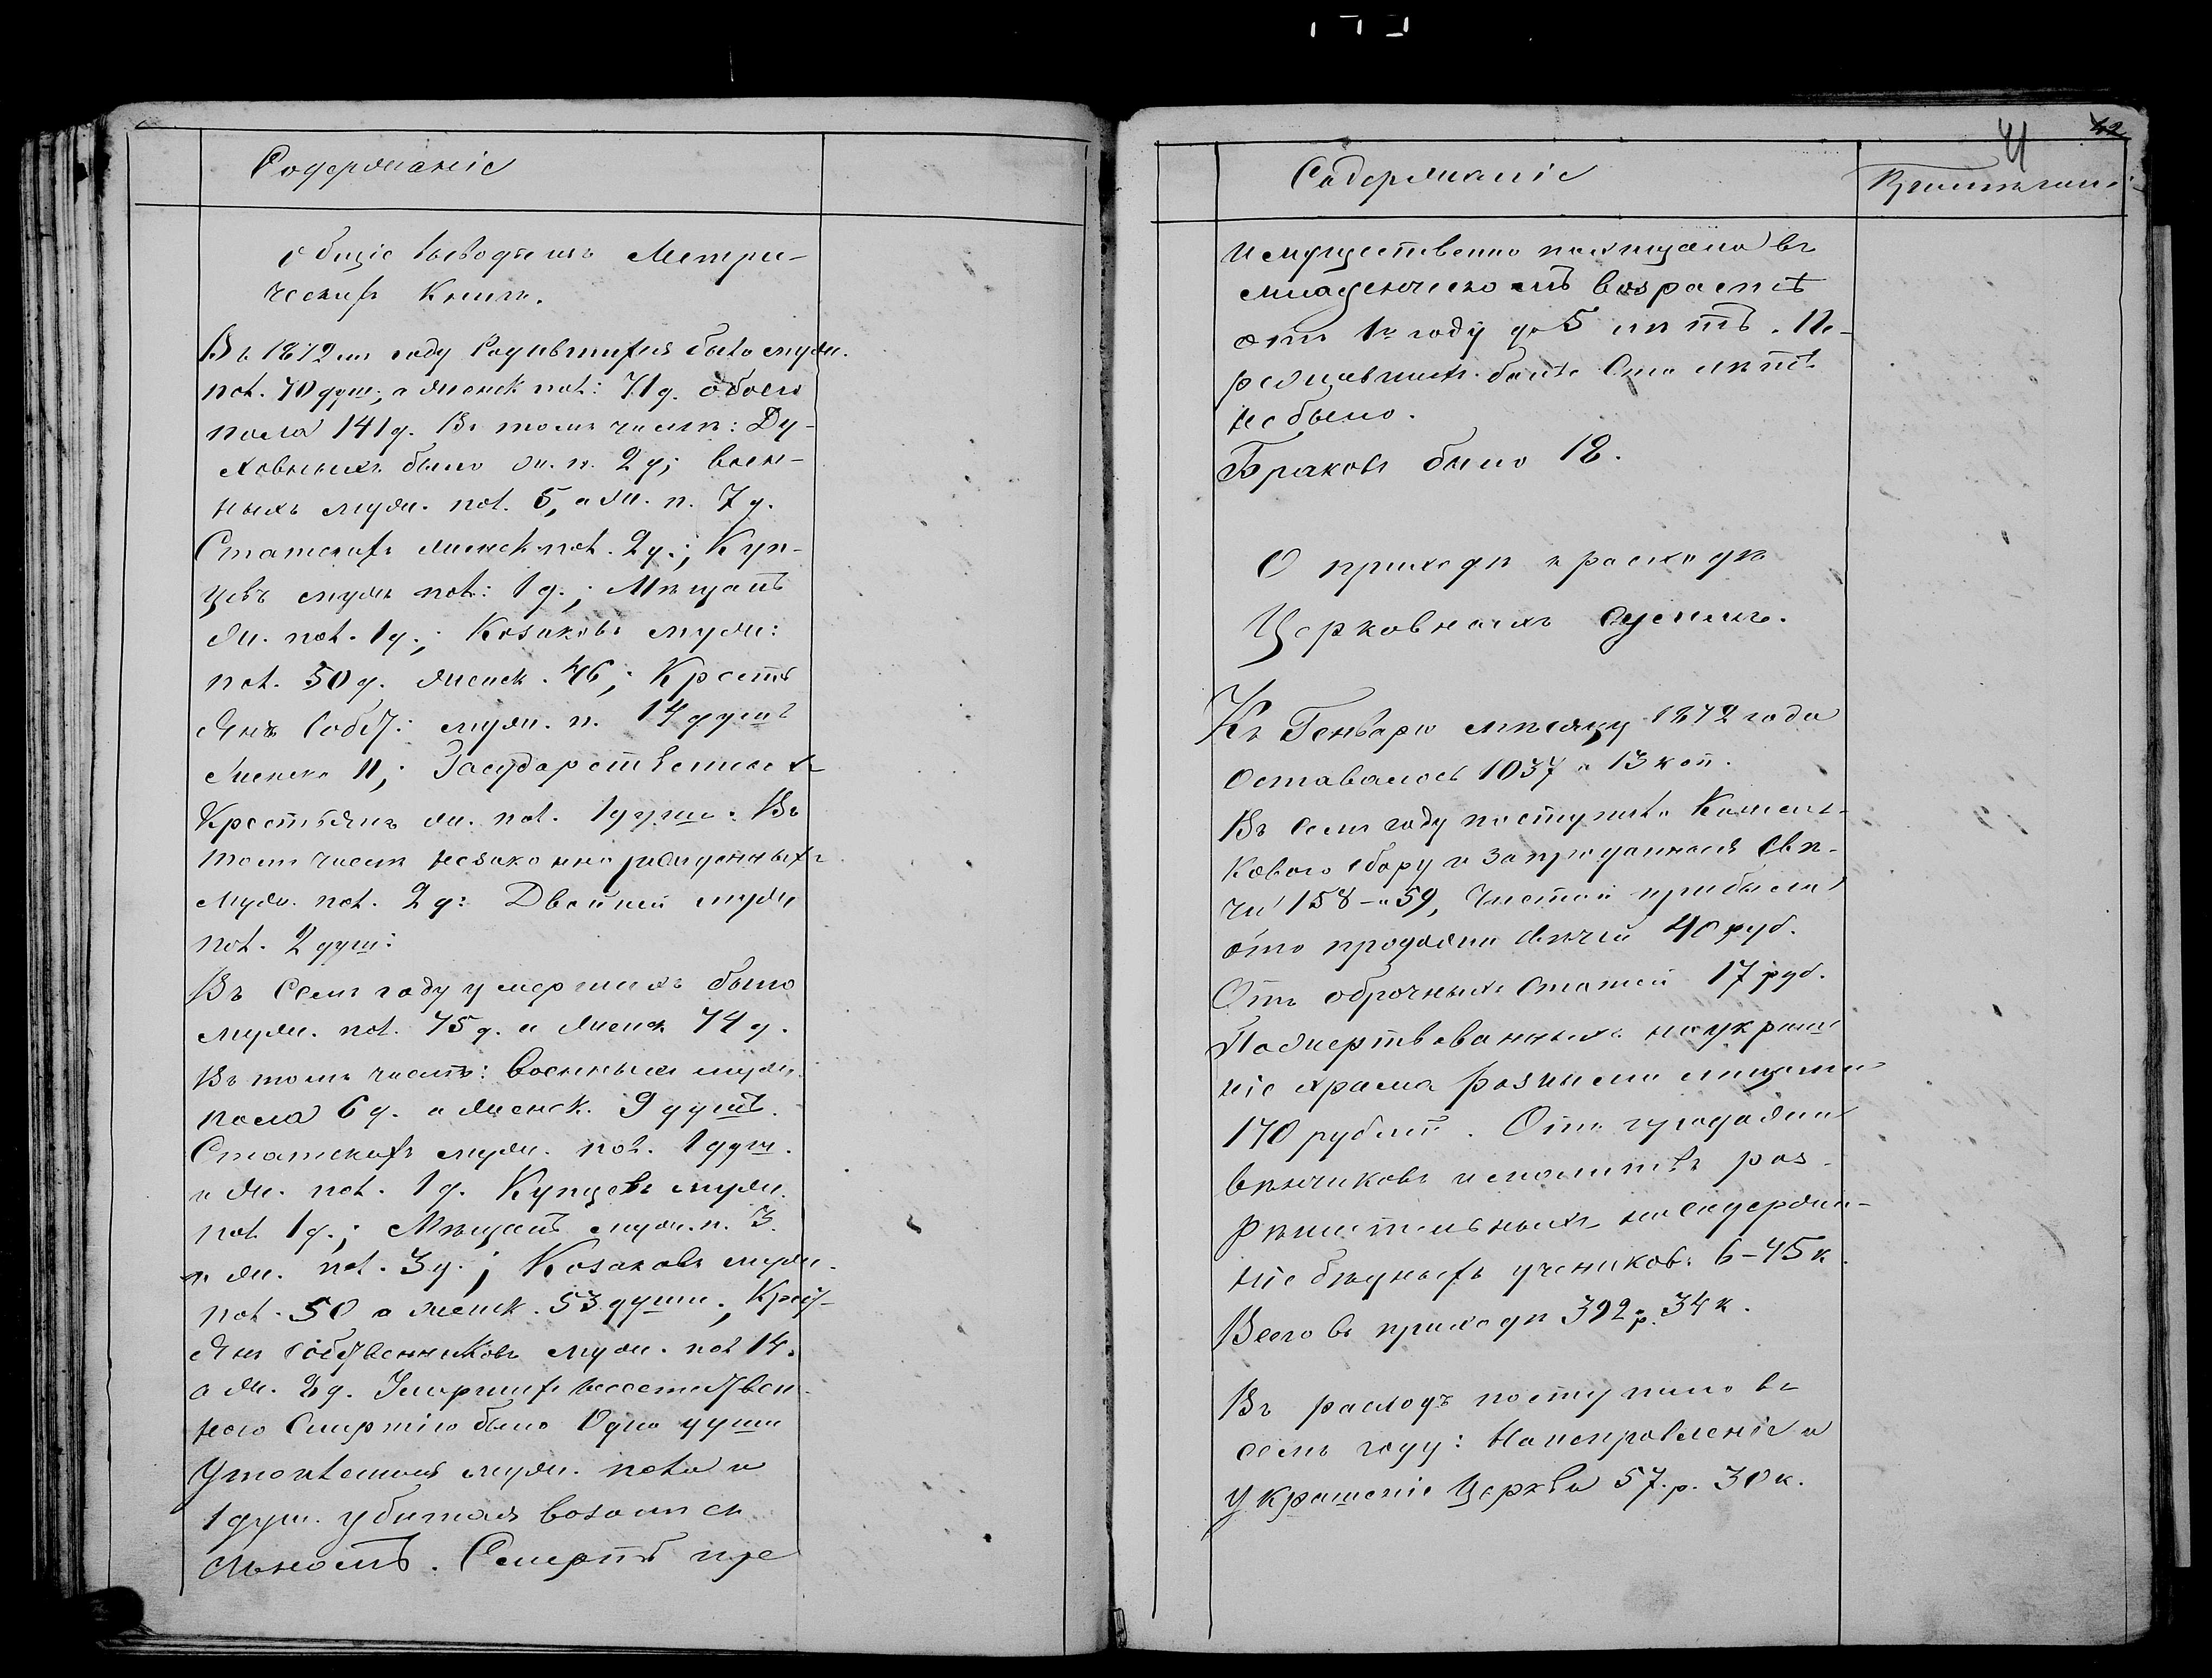 Содержаніе
Общіе выводы изъ Метри-
ческихъ Книгъ.
Въ 1872мъ году Родившихся было муж.
пол. 70 душ, а женск пол: 71 д. обоего
пола 141 д. Въ томъ числѣ: Ду-
ховныхъ было ж. п. 2 д; воен-
ныхъ муж. пол. 5, а ж. п. 7 д.
Статскихъ женск пол. 2 д.; Куп-
цевъ муж пол: 1 д.; Мѣщанъ
ж. пол. 1 д.; Козаковъ муж:
пол. 50 д. женск. 46; Кресть
янъ Собст: муж. п. 14 душъ
женска 11; Государственных
Крестьянъ ж. пол. 1 душа. Въ
томъ числѣ незаконно рожденныхъ
муж. пол. 2 д: Двойней муж
пол. 2 душ:
Въ семъ году умершихъ было
муж. пол. 75 д. а женск 74 д.
Въ томъ числѣ: военныхъ муж.
пола 6 д. а женск. 9 душъ.
Статскихъ муж. пол. 1 душ.
и ж. пол. 1 д. Купцевъ муж.
пол 1 д.; Мѣщанъ муж. п. 3.
и ж. пол. 3 д.; Козаковъ муж.
пол. 50 а женск. 53 души.; Крест-
янъ собственниковъ муж. пол 14.
а ж. 2 д. Умершихъ неестествен-
ною Смертію было Одна душа
Утонтемъ муж. пола и
1 душ. убитая
Смерть пре
41 42
Содержаніе
Примѣчаніе
имущественно похищала въ
младенческомъ возрастѣ
отъ 1го году до 5 лѣтъ. Пе-
режившихъ болѣе Ста лѣтъ
не было.
Браковъ было 18.
О приходѣ и расходѣ
Церковныхъ суммъ.
Къ Генварю мѣсяцу 1872 года
Оставалось 1037 " 13 коп.
Въ семъ году поступило Кошель-
коваго сбору и за проданныя свѣ-
чи 158 - " 59, Чистой прибыли
отъ продажи свѣчей 40 руб.
Отъ оброчныхъ статей 17 руб.
Пожертвованныхъ на украше
ніе храма разными лицами
170 рублей. Отъ продажи
вѣнчиковъ и молитвъ раз-
рѣшительныхъ на содержа-
ніе бѣдныхъ учениковъ 6-75 к.
Всего въ приходѣ 392 р. 34 к.
Въ расходъ поступило въ
семъ году: На исправленіе и
Украшеніе Церкви 57. р. 30 к.